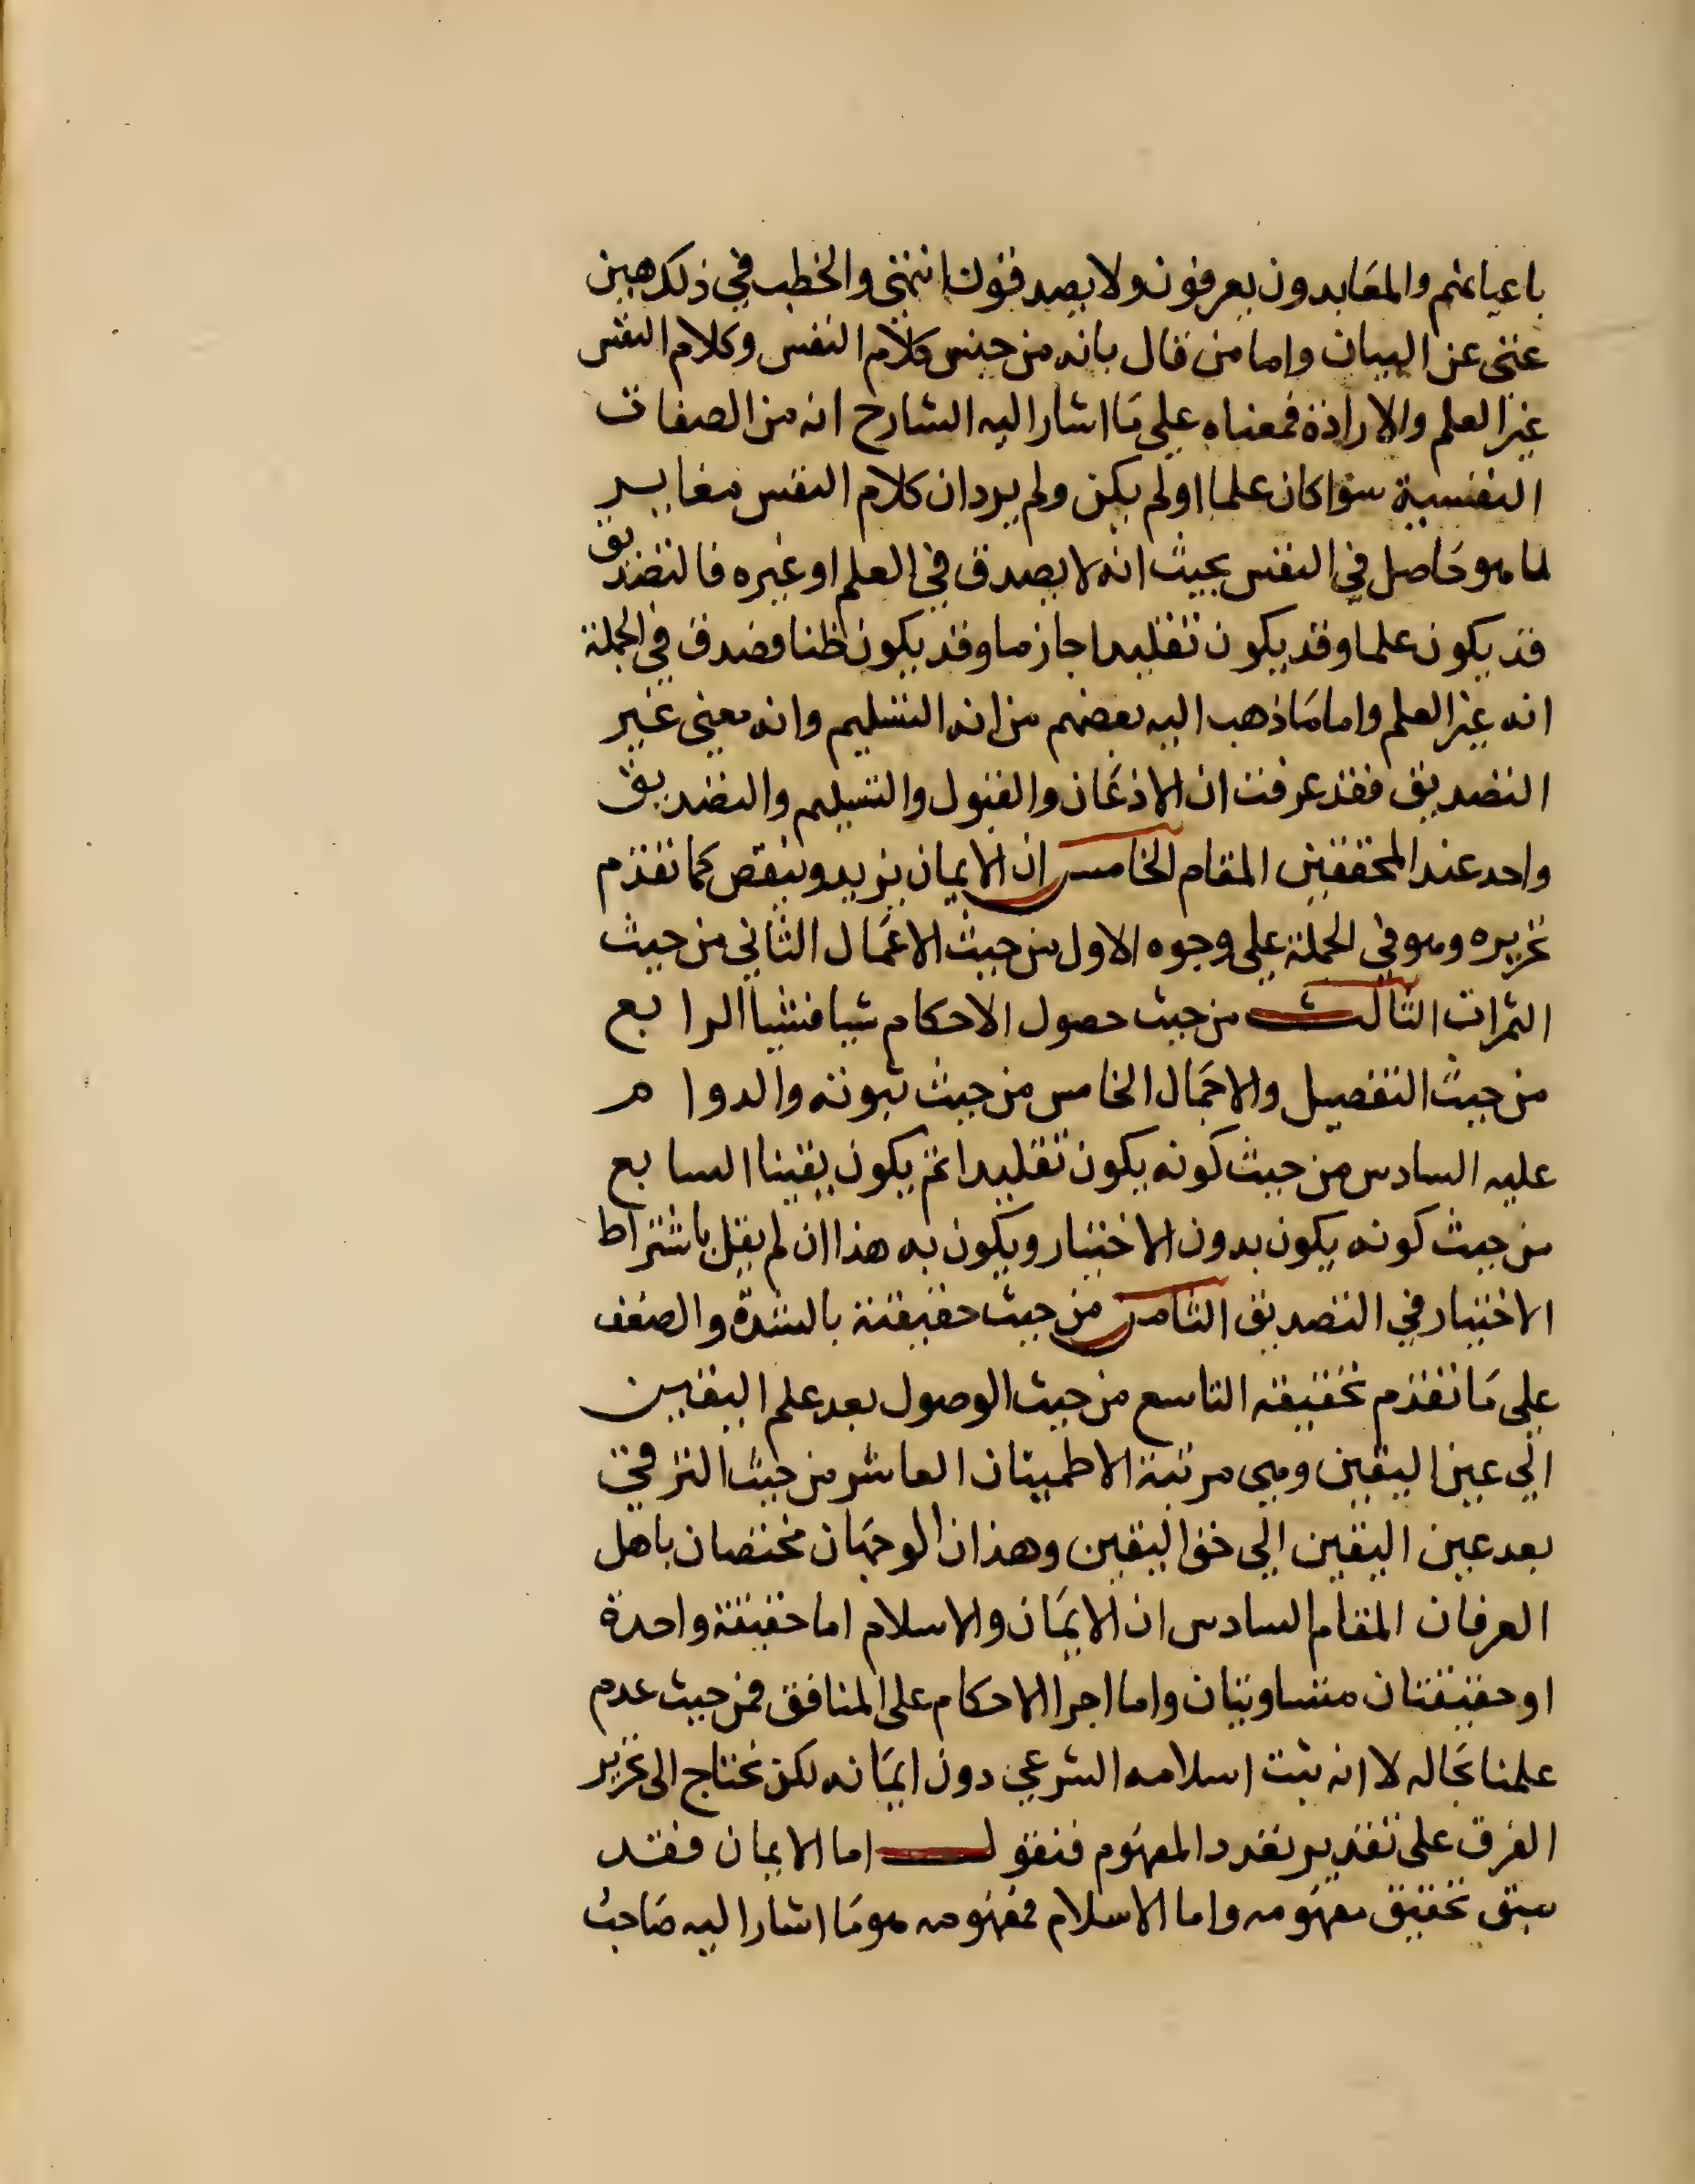 باعيانهم والمعاندون يعرفون ولا يصدقون انتهى والخطب في ذلك هين
غنى عن البيان واما من قال بانه من جنس كلام النفس وكلام النفس
غير العلم والارادة فمعناه على ما اشار اليه الشارح انه من الصفات
النفسية سوا كان علما او لم يكن ولم يرد ان كلام النفس مغاير
لما هو حاصل في النفس بحيث انه لا يصدق في العلم او غيره فالتصديق
قد يكون علما وقد يكون تقليدا جازما وقد يكون ظنا فصدق في الجملة
انه غير العلم واما ما ذهب اليه بعضهم من انه التسليم وانه معنى غير
التصديق فقد عرفت ان الاذعان والقبول والتسليم والتصديق
واحد عند المحققين المقام الخامس ان الايمان يزيد وينقص كما تقدم
تحريره وهو في الجملة على وجوه الاول من حيث الاعمال الثاني من حيث
الثمرات الثالث من حيث حصول الاحكام شيا فشيا الرابع
من حيث التفصيل والاجمال الخامس من حيث ثبوته والدوام
عليه السادس من حيث كونه يكون تقليدا ثم يكون يقينا السابع
من حيث كونه يكون بدون الاختيار ويكون به هذا ان لم يقل باشتراط
الاختيار في التصديق الثامن من حيث حقيقته بالشدة والضعف
على ما تقدم تحقيقه التاسع من حيث الوصول بعد علم اليقين
الي عين اليقين وهي مرتبة الاطمينان العاشر من حيث الترقي
بعد عين اليقين الي حق اليقين وهذان الوجهان مختصان باهل
العرفان المقام السادس ان الايمان والاسلام اما حقيقة واحدة
او حقيقتان متساويتان واما اجرا الاحكام على المنافق فمن حيث عدم
علمنا بحاله لا انه يثبت اسلامه الشرعي دون ايمانه لكن نحتاج الى تحرير
الفرق على تقدير تعدد المفهوم فنقول اما الايمان فقد
سبق تحقيق مفهومه واما الاسلام فمفهومه هو ما اشار اليه صاحب